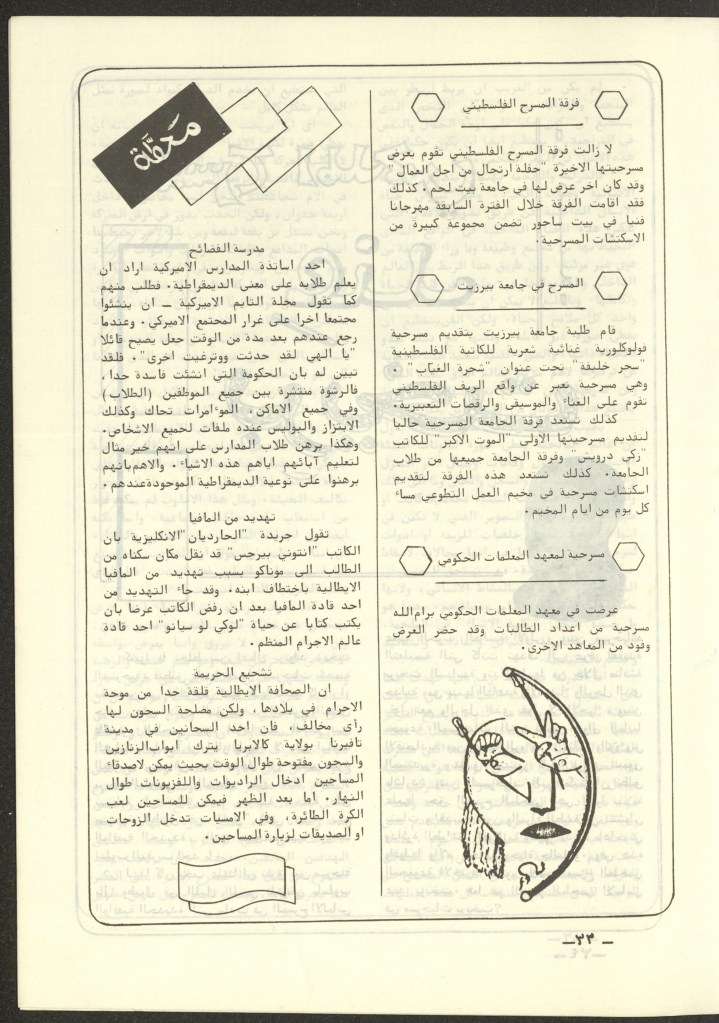 فرقة المسرح الفلسطيني
لا زالت فرقة المسرح الفلسطيني تقوم بعرض
مسرحيتها الاخيرة "حفلة ارتجال من اجل العمال"
وقد كان اخر عرض لها في جامعة بيت لحم. كذلك
فقد اقامت الفرقة خلال الفترة السابقة مهرجانا
فنيا في بيت ساحور تضمن مجموعة كبيرة من
الاسكتشات المسرحية.
المسرح في جامعة بيرزيت
قام طلبة جامعة بيرزيت بتقديم مسرحية
فولوكلورية غنائية شعرية للكاتبة الفلسطينية
"سحر خليفة" تحت عنوان "شجرة الغياب".
وهي مسرحية تعبر عن واقع الريف الفلسطيني
تقوم على الغناء والموسيقى والرقصات التعبيرية.
كذلك تستعد فرقة الجامعة المسرحية حاليا
لتقديم مسرحيتها الاولى "الموت الاكبر" للكاتب
"زكي درويش" وفرقة الجامعة جميعها من طلاب
الجامعة. كذلك تستعد هذه الفرقة لتقديم
اسكتشات مسرحية في مخيم العمل التطوعي مساء
كل يوم من ايام المخيم.
مسرحية لمعهد المعلمات الحكومي
عرضت في معهد المعلمات الحكومي برام الله
مسرحية من اعداد الطالبات وقد حضر العرض
وفود من المعاهد الاخرى.
محطة
مدرسة الفضائح
احد اساتذة المدارس الاميركية اراد ان
يعلم طلابه على معنى الديمقراطية. فطلب منهم
كما تقول مجلة التايم الاميركية ــ ان ينشئوا
مجتمعا اخرا على غرار المجتمع الاميركي. وعندما
رجع عندهم بعد مدة من الوقت جعل يصيح قائلا
"يا الهي لقد حدثت ووترغيت اخرى". فلقد
تبين له بان الحكومة التي انشئت فاسدة جدا،
فالرشوة منتشرة بين جميع الموظفين (الطلاب)
وفي جميع الاماكن، الموءامرات تحاك وكذلك
الابتزاز والبوليس عنده ملفات لجميع الاشخاص.
وهكذا برهن طلاب المدارس على انهم خير مثال
لتعليم آبائهم اياهم هذه الاشياء. والاهم بانهم
برهنوا على نوعية الديمقراطية الموجودة عندهم.
تهديد من المافيا
تقول جريدة "الجارديان" الانكليزية بان
الكاتب "انتوني بيرجس" قد نقل مكان سكناه من
الطالب الى موناكو بسبب تهديد من المافيا
الايطالية باختطاف ابنه. وقد جاء التهديد من
احد قادة المافيا بعد ان رفض الكاتب عرضا بان
يكتب كتابا عن حياة "لوكي لو سيانو" احد قادة
عالم الاجرام المنظم.
تشجيع الجريمة
ان الصحافة الايطالية قلقة جدا من موجة
الاجرام في بلادها، ولكن مصلحة السجون لها
رأى مخالف، فان احد السجانين في مدينة
تافيرنا بولاية كالابريا يترك ابواب الزنازين
والسجون مفتوحة طوال الوقت بحيث يمكن لاصدقاء
المساجين ادخال الراديوات والتلفزيونات طوال
النهار. اما بعد الظهر فيمكن للمساجين لعب
الكرة الطائرة، وفي الامسيات تدخل الزوجات
او الصديقات لزيارة المساجين.
ــ ٢٣ ــ